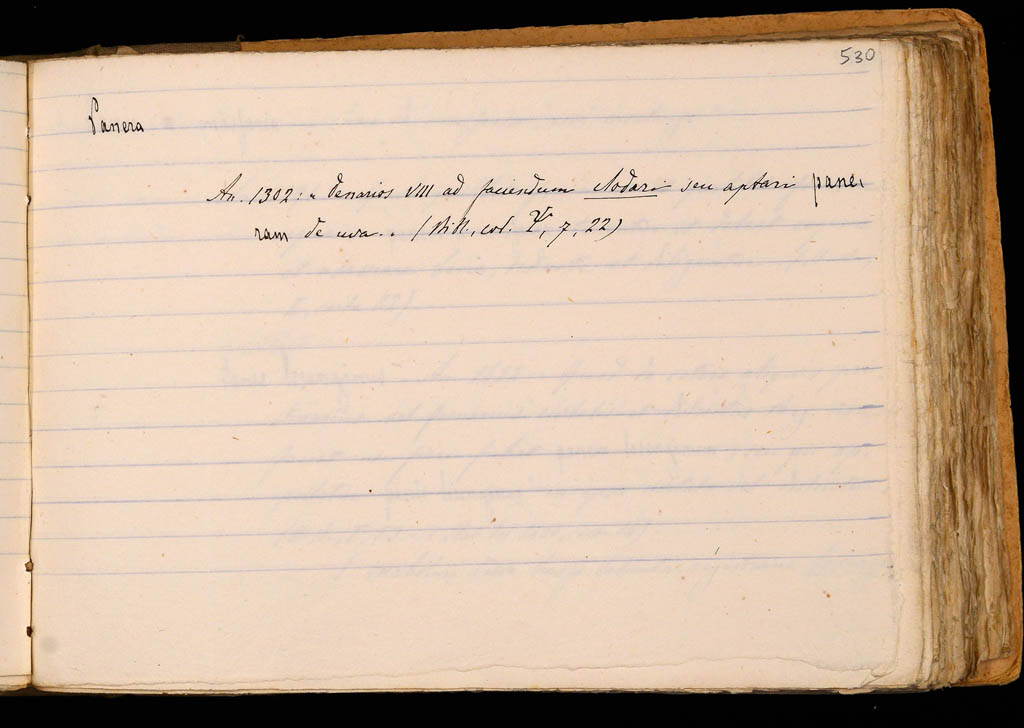 530
Panera
An. 1302: « Denarios VIII ad faciendum Nodari seu aptari pane,
ram de uva. » (Mill., col. Ψ, 7, 22)